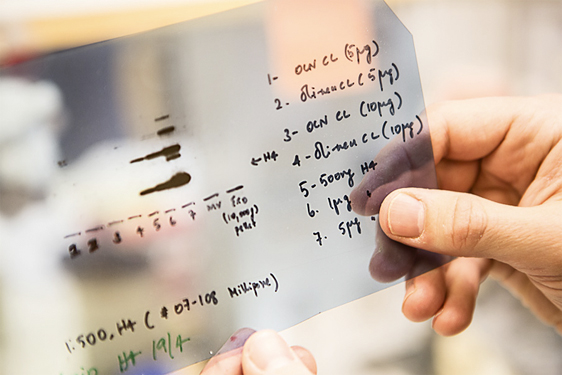 1- OLN CL (5µg)
2. Oli-neu CL (5µg)
3- OLN CL (10µg)
←H4
4-Oli-neu CL (10µg)
5-500ng H4
6. 1µg "
7. 5µg "
1 2 3 4 5 6 7 MW
1:500, H4 (# 07-108 Millipore)
H4 19/4